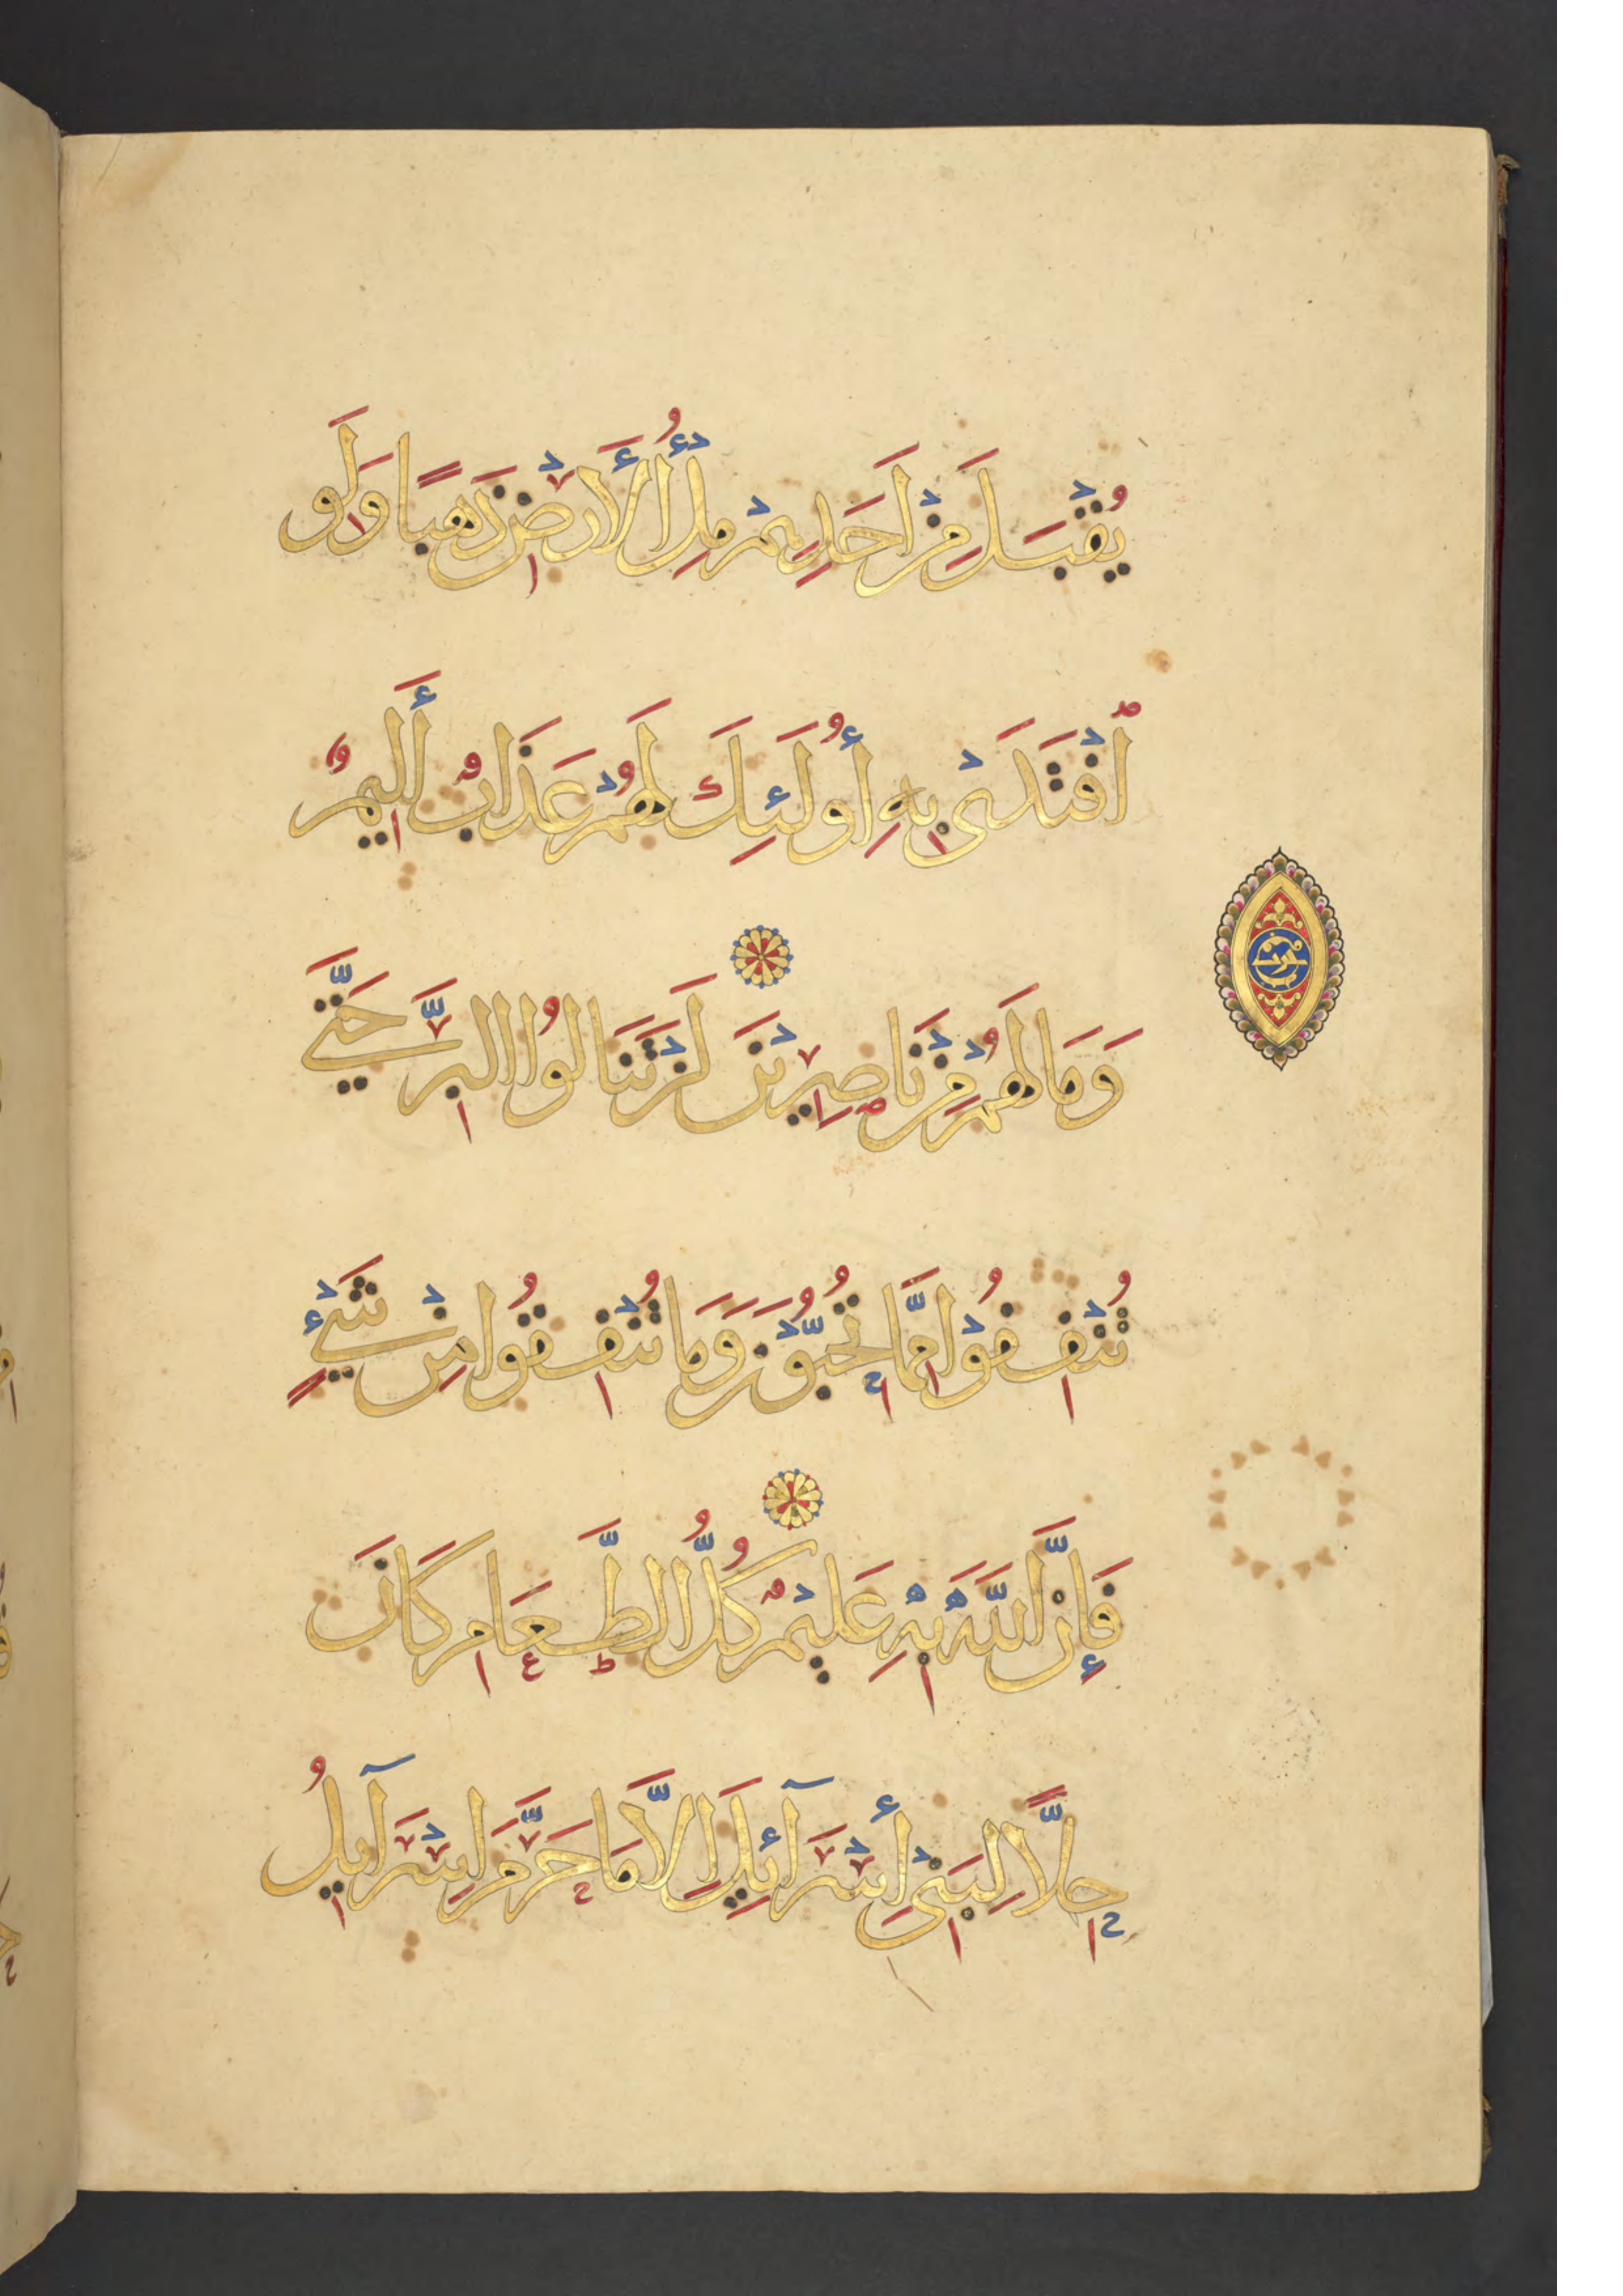 يُقْبَلَ مِنْ أَحَدِهِمْ مِلْءُ الْأَرْضِ ذَهَبًا وَلَوِ
اُفْتَدَىٰ بِهِ أُولَئِكَ لَهُمْ عَذَابٌ أَلِيمٌ
وَمَا لَهُمْ مِنْ نَاصِرِينَ لَنْ تَنَالُوا الْبِرَّ حَتَّى
تُنْفِقُوْا مِمَّا تُحِبُّوْنَ وَمَا تُنْفِقُوا مِنْ شَيْءٍ
فَإِنَّ اللَّهَ بِهِ عَلِيْمٌ كُلُّ الطَّعَامِ كَانَ
حِلًّا لِبَنِيْ إِسْرَآئِيلَ إِلَّا مَا حَرَّمَ إِسْرَآيِلُ